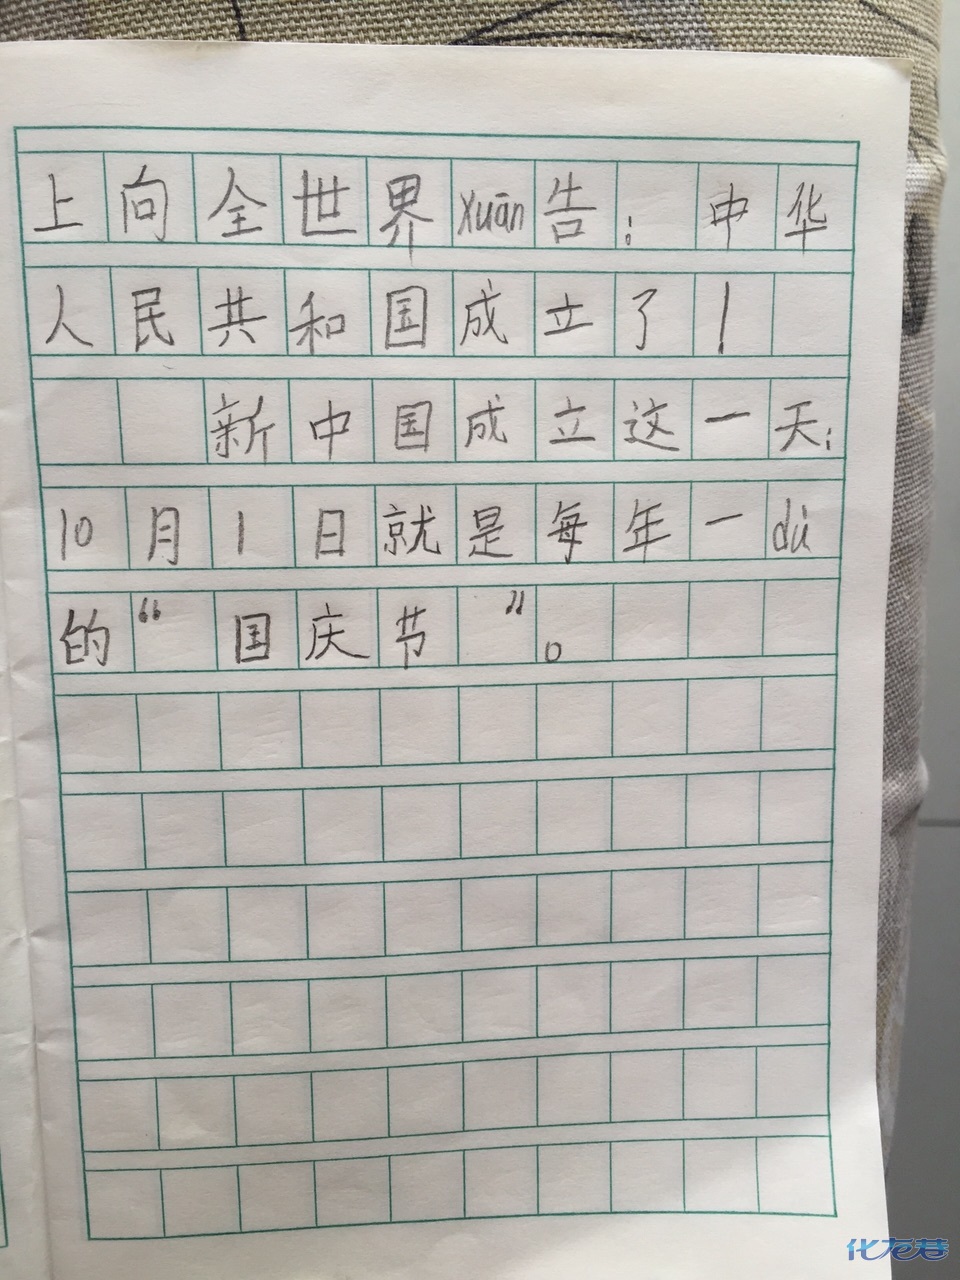 上向全世界xuān告：中华
人民共和国成立了！
新中国成立这一天：
10月1日就是每年一dù
的“国庆节”。
化龙巷